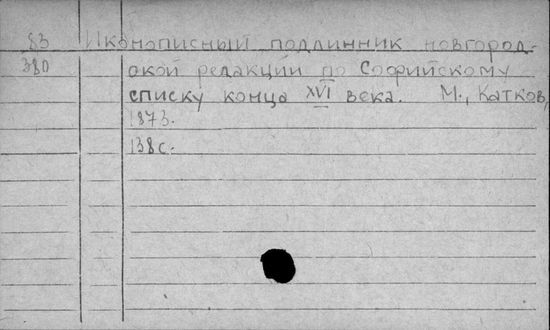 83 Иконописный подлинник новгород-
380 ской редакции по Софийскому
списку конца XVI века. М., Катков,
1873.
138с.